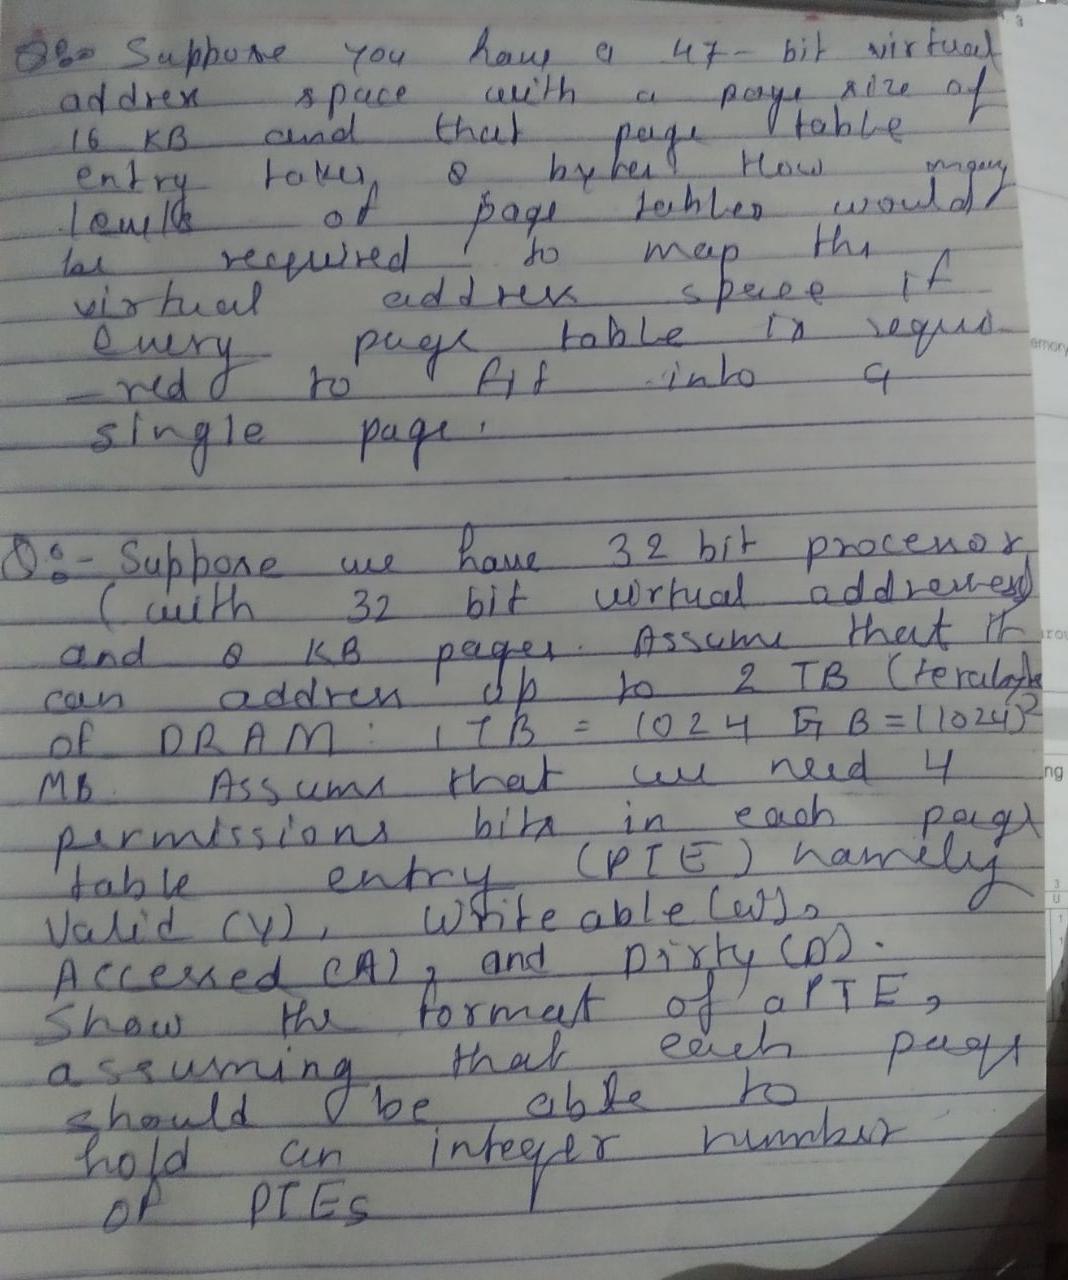 Q:- Suppose you have a 47-bit virtual
address space with a page size of
16 KB and that page table
entry takes 8 bytes How many
levels of page tables would
be required to map the
virtual address space if
every page table is requi-
-red to fit into a
single page.
Q:- Suppose we have 32 bit processor
(with 32 bit virtual addresses)
and 8 KB pages. Assume that it
can address up to 2 TB (terabyte
of DRAM: 1 TB = 1024 GB = (1024)²
MB. Assume that we need 4
permissions bits in each page
table entry (PTE) namely
Valid (V), Writeable (W),
Accessed (A), and Dirty (D).
Show the format of a PTE,
assuming that each page
should be able to
hold an integer number
of PTEs
emory
ng